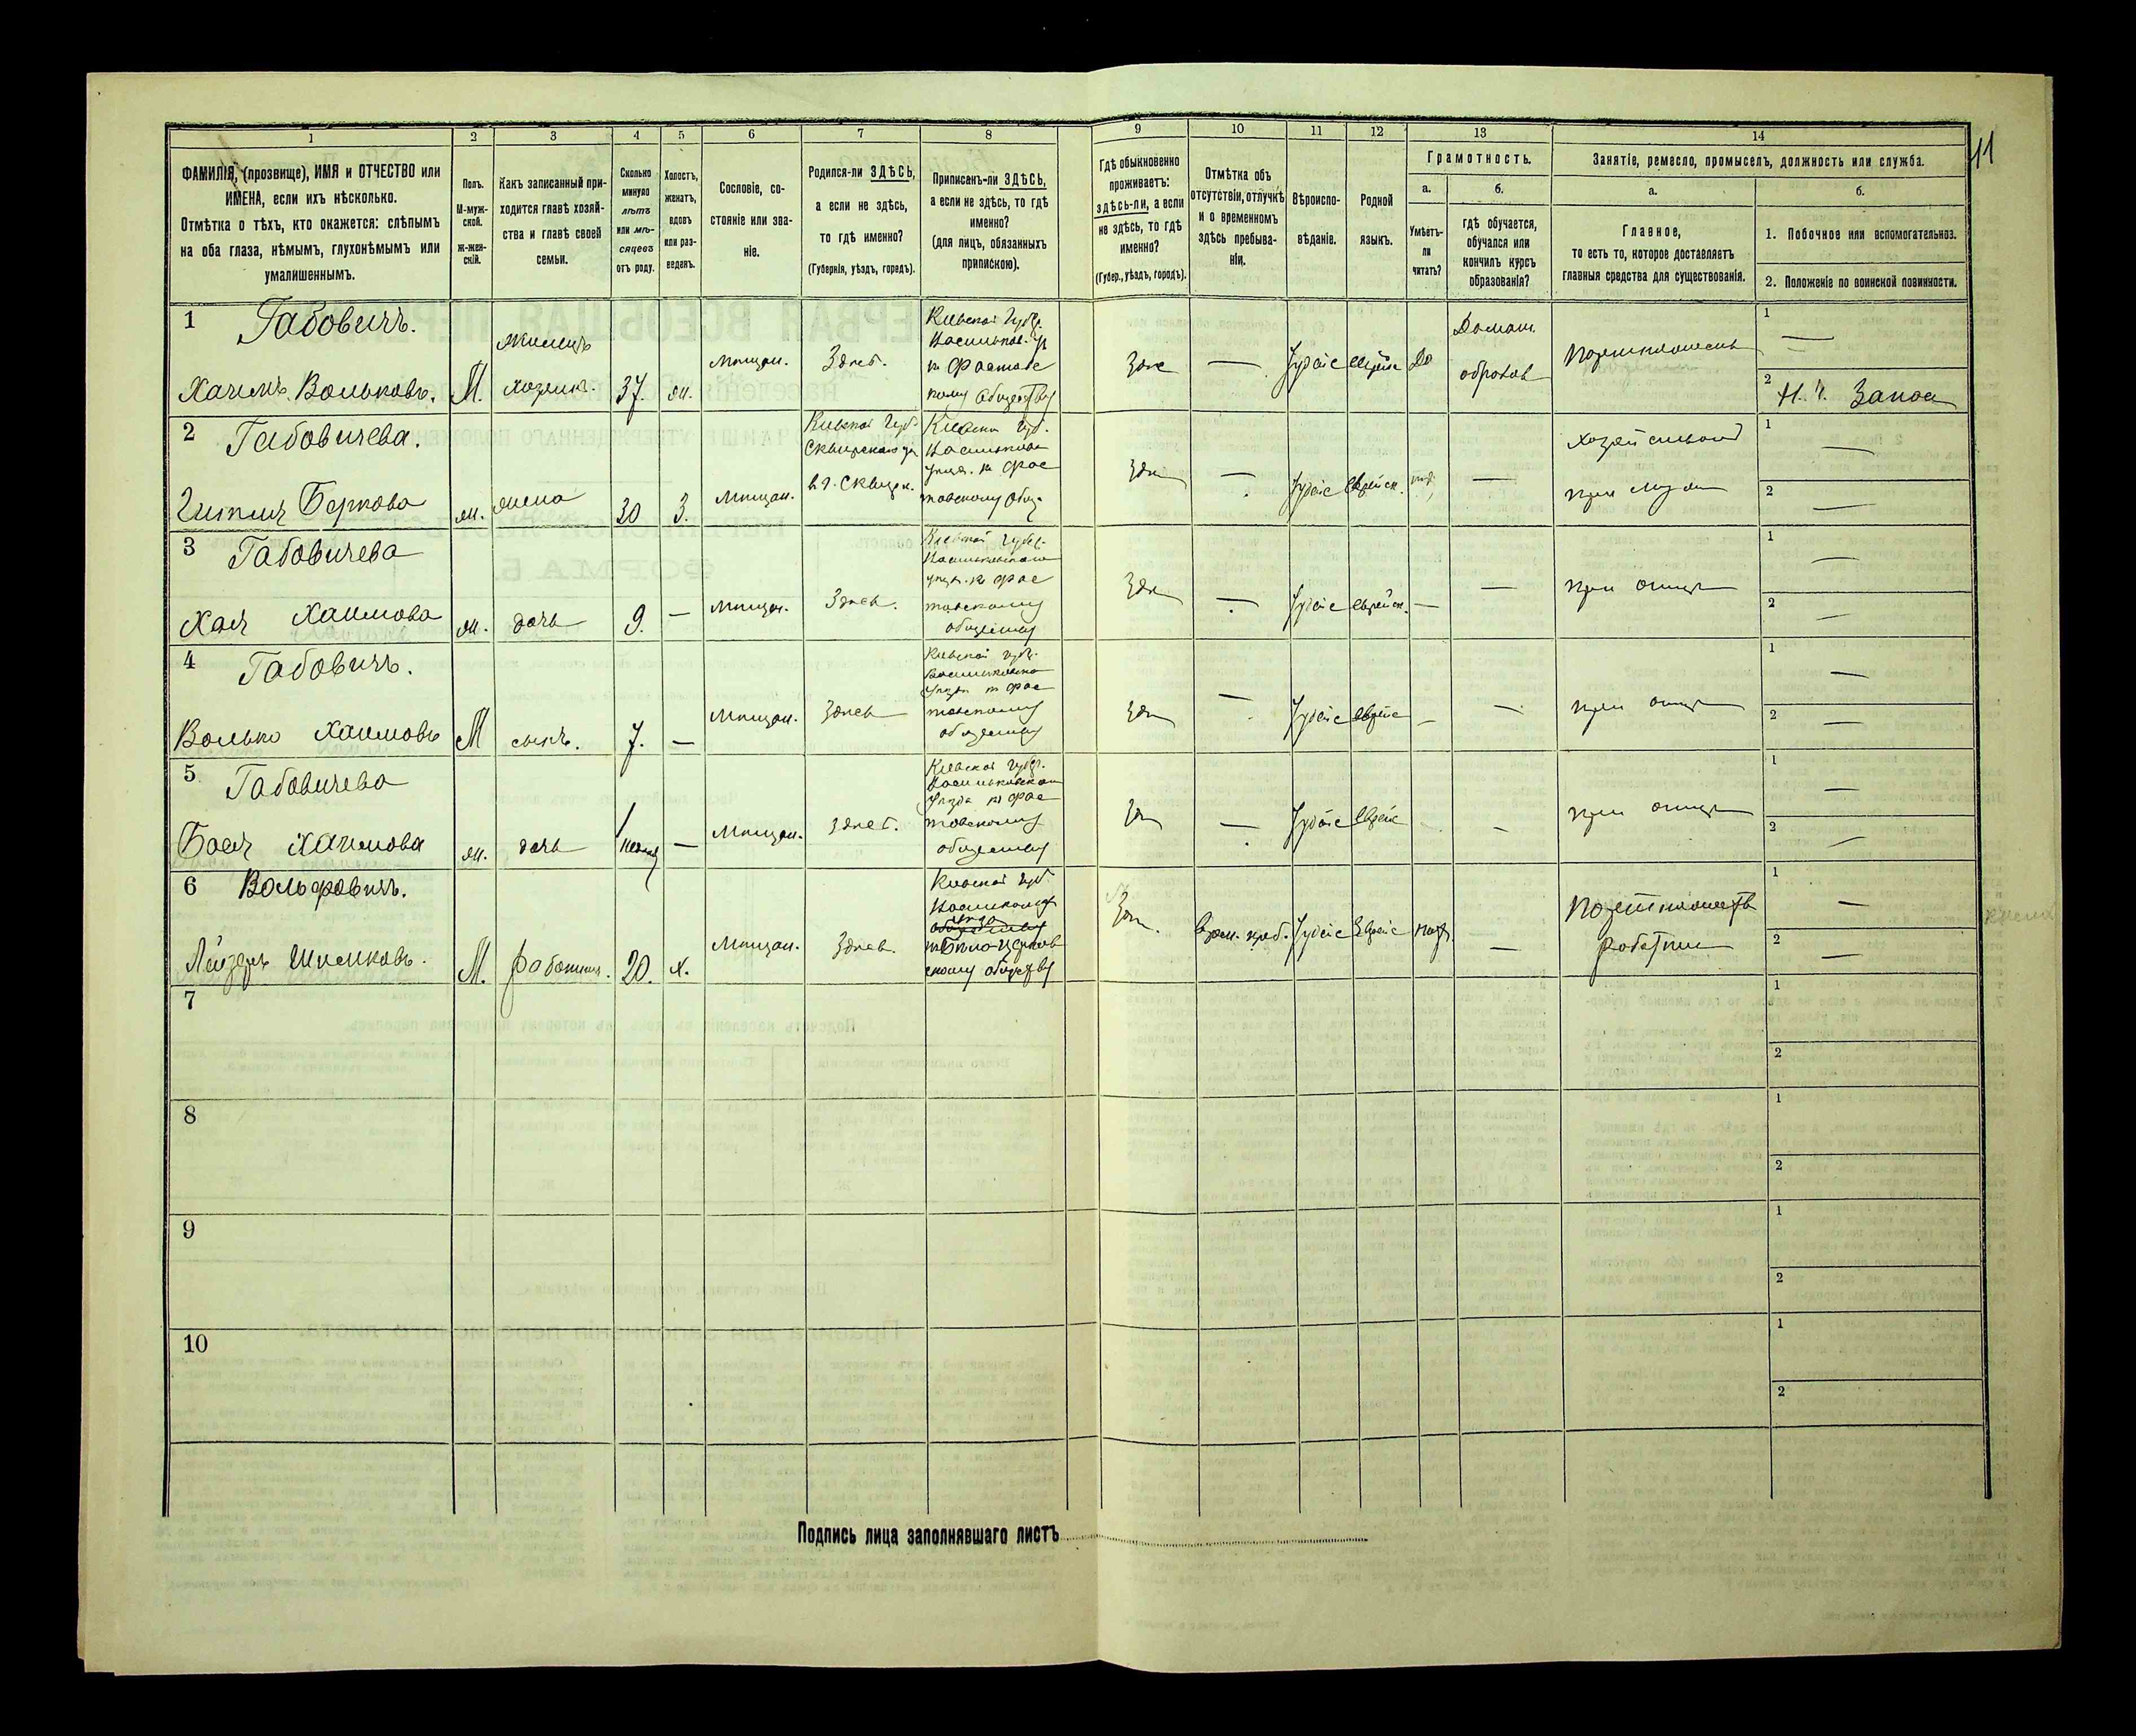 1
2
3
4
5
6
7
8
9
10
11
12
13
14
11
ФАМИЛІЯ, (прозвище), ИМЯ и ОТЧЕСТВО или
ИМЕНА, если ихъ нѣсколько.
Отмѣтка о тѣхъ, кто окажется: слѣпымъ
на оба глаза, нѣмымъ, глухонѣмымъ или
умалишеннымъ.
Полъ.
М-муж-
ской.
Ж-жен-
скій.
Какъ записанный при-
ходится главѣ хозяй-
ства и главѣ своей
семьи.
Сколько
минуло
лѣтъ
или мѣ-
сяцевъ
отъ роду.
Холостъ,
женатъ,
вдовъ
или раз-
веденъ.
Сословіе, со-
стояніе или зва-
ніе.
Родился-ли ЗДѢСЬ,
а если не здѣсь,
то гдѣ именно?
(Губернія, уѣздъ, городъ).
Приписанъ-ли ЗДѢСЬ,
а если не здѣсь, то гдѣ
именно?
(для лицъ, обязанныхъ
припискою).
Гдѣ обыкновенно
проживаетъ:
здѣсь-ли, а если
не здѣсь, то гдѣ
именно?
(Губер., уѣздъ, городъ).
Отмѣтка объ
отсутствіи, отлучкѣ
и о временномъ
здѣсь пребыва-
ніи.
Вѣроиспо-
вѣданіе.
Родной
языкъ.
Грамотность.
а.
Умѣетъ-
ли
читать?
б.
гдѣ обучается,
обучался или
кончилъ курсъ
образованія?
Занятіе, ремесло, промыселъ, должность или служба.
а.
Главное,
то есть то, которое доставляетъ
главныя средства для существованія.
б.
1. Побочное или вспомогательное.
2. Положеніе по воинской повинности.
1
Габовичъ.
Хаимъ Вольковъ.
М.
жилецъ
хозяинъ.
37.
ж.
мѣщан.
Здѣсь.
Кіевской Губер.
к Фастовс
кому обществу
Здѣс
—
Іудейс
еврейс
да
Домаш.
образов
1
—
2
Запас
2
Габовичева.
Гитля Беркова
ж.
жена
30
З.
мѣщан.
Кіевской Губ.
Сквирскаго уѣ
в г. Сквир.
Кіевской Губ.
уѣзд. к Фас
товскому общ.
Здѣ
—
Іудейс
еврейск.
—
при мужѣ
1
—
2
—
3
Габовичева
Хая Хаимова
ж.
дочь
9.
—
мѣщан.
Здѣсь.
Кіевской Губер.
Васильковскаго
уѣзд. к Фас
товскому
обществу
Здѣ
—
Іудейс
еврейск.
—
—
при отцѣ
1
—
2
—
4
Габовичъ.
Волько Хаимовъ
М
сынъ.
7.
—
мѣщан.
Здѣсь
Кіевской губер.
Васильковскаго
уѣзда к Фас
товскому
обществу
Здѣ
—
Іудейс
еврейс
—
—
при отцѣ
1
—
2
—
5
Габовичева
Бася Хаимова
ж.
дочь
—
мѣщан.
здѣсь.
Кіевской губер.
Васильковскаго
уѣзда к Фас
товскому
обществу
Здѣ
—
Іудейс
еврейс
—
при отцѣ
1
—
2
—
6
Вольфовичъ.
Лейзеръ Шмилковъ.
М.
работник.
20.
х.
мѣщан.
Здѣсь
Кіевской губ.
к Бѣло-Церков
скому обществу
Здѣ.
врем. преб.
Іудейс
Еврейс
—
работник
1
—
2
—
7
1
2
8
1
2
9
1
2
10
1
2
Подпись лица заполнявшаго листъ